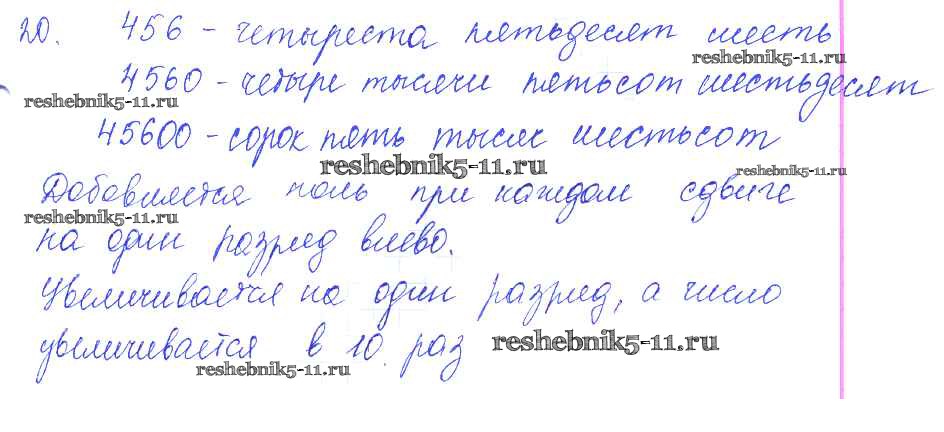 20. 456 - четыреста пятьдесят шесть
reshebnik5-11.ru
4560 - четыре тысячи пятьсот шестьдесят
reshebnik5-11.ru
45600 - сорок пять тысяч шестьсот
reshebnik5-11.ru
reshebnik5-11.ru
Добавляется ноль при каждом сдвиге
reshebnik5-11.ru
на один разряд влево.
Увеличивается на один разряд, а число
увеличивается в 10 раз
reshebnik5-11.ru
reshebnik5-11.ru